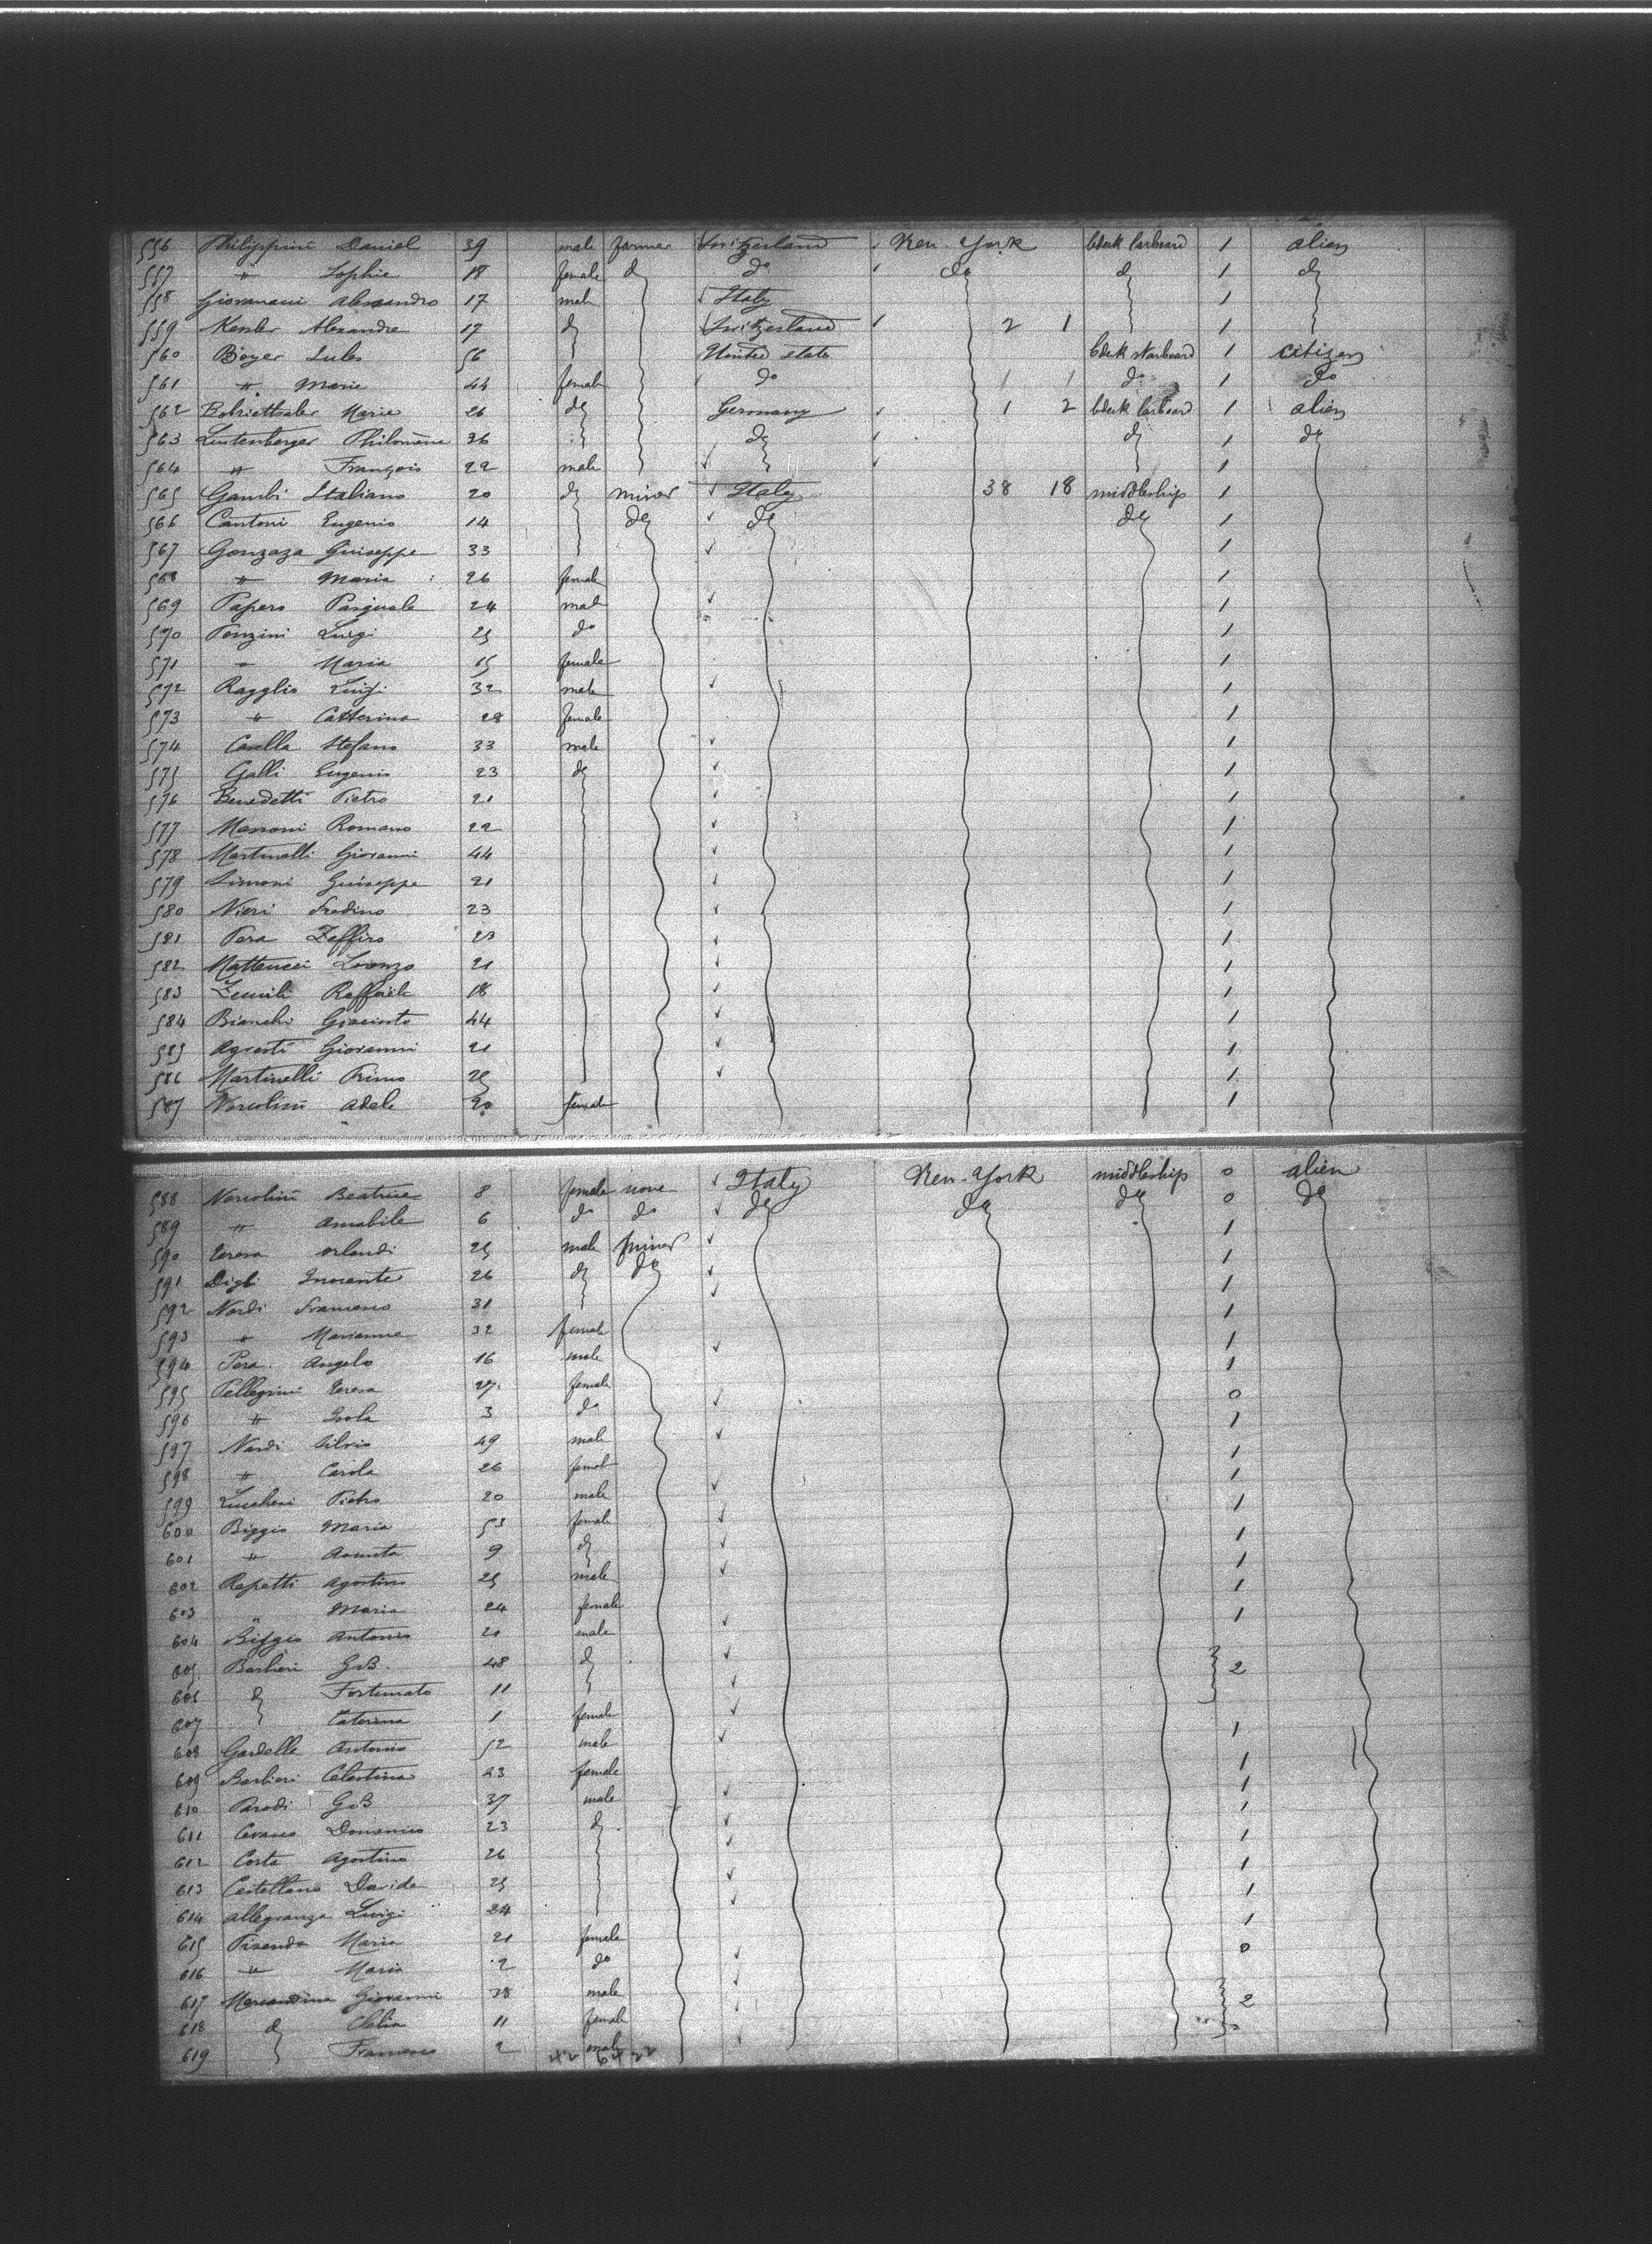 556 Philippini Daniel 39 male farmer Switzerland New-York bdeck larboard 1 alien
557 " Sophie 18 female do do do do 1 do
558 Giovanani Alessandro 17 male Italy 1
559 Kesler Alexandre 17 do Switzerland 2 1 1
560 Boyer Jules 56 United state bdeck starboard 1 citizen
561 " Marie 44 female do 1 1 do 1 do
562 Marie 26 do Germany 1 2 bdeck larboard 1 alien
563 Lustenberger Philomène 36 do do 1 do
564 " François 22 male 1
565 Gambi Italiano 20 do miner Italy 38 18 middleship 1
566 Cantoni Eugenio 14 do do do 1
567 Gonzaza Guiseppe 33 1
568 " Maria 26 female 1
569 Papero Pasquale 24 male 1
570 Ponzini Luigi 25 do 1
571 " Maria 15 female 1
572 Ragglio Luigi 32 male 1
573 " Catterina 28 female 1
574 Casella Stefano 33 male 1
575 Galli Eugenio 23 do 1
576 Benedetti Pietro 21 1
577 Massoni Romano 22 1
578 Martinelli Giovanni 44 1
579 Simoni Guiseppe 21 1
580 Nieri 23 1
581 Pera Zeffiro 1
582 Matteucci Lorenzo 21 1
583 Raffaele 18 1
584 Bianchi Giacinto 44 1
585 Agresti Giovanni 21 1
586 Martinelli Primo 25 1
587 Norcolini Adele 20 female 1
588 Norcolini Beatrice 8 female none Italy New-York middleship 0 alien
589 " Amabile 6 do do do do do 0 do
590 Teresa Orlandi 25 male miner 1
591 Digli Innocente 26 do do 1
592 Nardi Francesco 31 1
593 " Marianna 32 female 1
594 Pera Angelo 16 male 1
595 Pellegrini Teresa 27 female 1
596 " Isola 3 do 0
597 Nardi Silvio 49 male 1
598 " Carola 26 female 1
599 Luccheni Pietro 20 male 1
600 Biggio Maria 53 female 1
601 " Assunta 9 do 1
602 Repetti Agostino 25 male 1
603 " Maria 24 female 1
604 Biggio Antonio 20 male 1
605 Barbieri G.B. 48 do 2
606 do Fortunato 11
607 Caterina 1 female
608 Gardella Antonio 52 male 1
609 Barbieri Celestina 43 female 1
610 Parodi G.B 37 male 1
611 Cevasco Domenico 23 do 1
612 Costa Agostino 26 1
613 Castellano Davide 25 1
614 Allegranza Luigi 24 1
615 Maria 21 female 1
616 " Maria 2 do 0
617 Mercandino Giovanni 38 male 2
618 do Clelia 11 female
619 Francesco 2 male